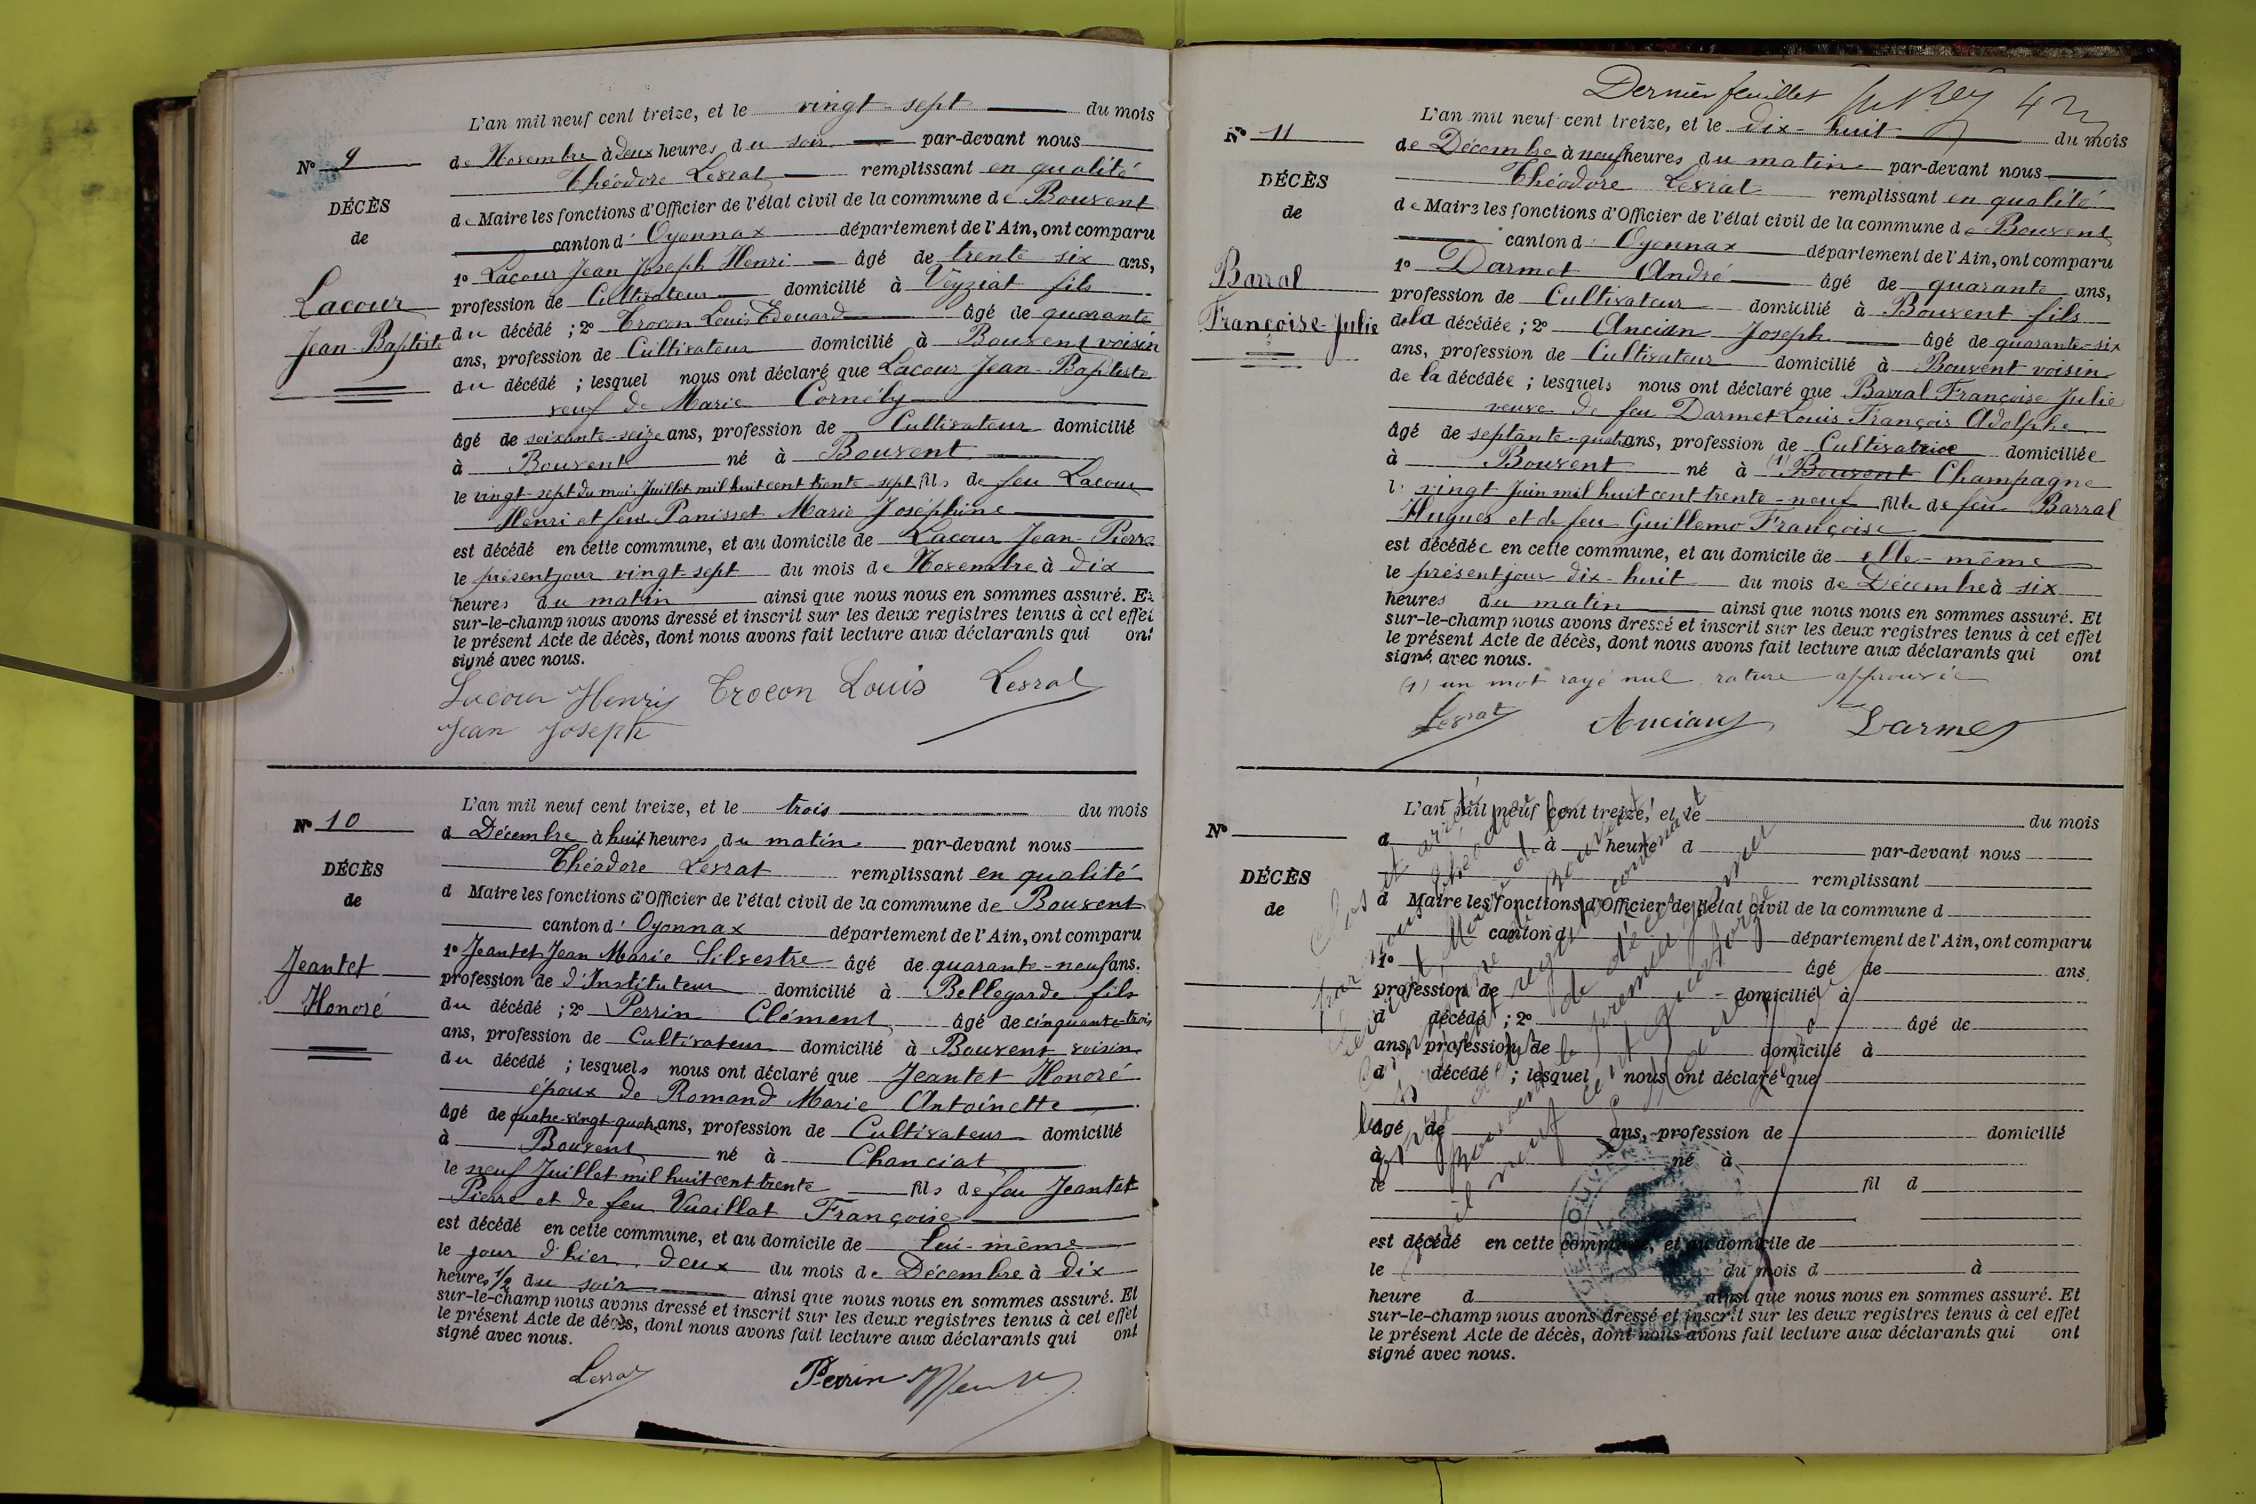 L'an mil neuf cent treize, et le vingt-sept du mois
de Novembre à deux heures du soir par-devant nous
Théodore Levrat remplissant en qualité
de Maire les fonctions d'Officier de l'état civil de la commune de Bouvent
canton d' Oyonnax département de l'Ain, ont comparu
1º Lacour Jean Joseph Henri âgé de trente six ans,
profession de Cultivateur domicilié à Veyziat fils
du décédé ; 2º Crocon Louis Edouard âgé de quarante
ans, profession de Cultivateur domicilié à Bouvent voisin
du décédé ; lesquel nous ont déclaré que Lacour Jean-Baptiste
veuf de Marie Cornély
âgé de soixante-seize ans, profession de Cultivateur domicilié
à Bouvent né à Bouvent
le vingt-sept du mois Juillet mil huit cent trente-sept fils de feu Lacour
Henri et feue Panisset Marie Joséphine
est décédé en cette commune, et au domicile de Lacour Jean-Pierre
le présent jour vingt-sept du mois de Novembre à dix
heures du matin ainsi que nous nous en sommes assuré. Et
sur-le-champ nous avons dressé et inscrit sur les deux registres tenus à cet effet
le présent Acte de décès, dont nous avons fait lecture aux déclarants qui ont
signé avec nous.
Lacour Henry Crocon Louis Levrat
Jean Joseph
Nº 9
DÉCÈS
de
Lacour
Jean-Baptiste
Nº 10
DÉCÈS
de
Jeantet
Honoré
L'an mil neuf cent treize, et le trois du mois
d Décembre à huit heures du matin par-devant nous
Théodore Levrat remplissant en qualité
d Maire les fonctions d'Officier de l'état civil de la commune de Bouvent
canton d' Oyonnax département de l'Ain, ont comparu
1º Jeantet Jean Marie Silvestre âgé de quarante-neuf ans.
profession de d'Instituteur domicilié à Bellegarde fils
du décédé ; 2º Perrin Clément âgé de cinquante-trois
ans, profession de Cultivateur domicilié à Bouvent voisin
du décédé ; lesquels nous ont déclaré que Jeantet Honoré
époux de Romand Marie Antoinette
âgé de quatre-vingt-quatre ans, profession de Cultivateur domicilié
à Bouvent né à Chanciat
le neuf Juillet mil huit cent trente fils de feu Jeantet
Pierre et de feu Vuaillat Françoise
est décédé en cette commune, et au domicile de lui-même
le jour d'hier deux du mois de Décembre à dix
heures 1/2 du soir ainsi que nous nous en sommes assuré. Et
sur-le-champ nous avons dressé et inscrit sur les deux registres tenus à cet effet
le présent Acte de décès, dont nous avons fait lecture aux déclarants qui ont
signé avec nous.
Levrat Perrin
Dernier feuillet
Nº 11
DÉCÈS
de
Barral
Françoise-Julie
L'an mil neuf cent treize, et le dix-huit du mois
de Décembre à neuf heures du matin par-devant nous
Théodore Levrat remplissant en qualité
de Maire les fonctions d'Officier de l'état civil de la commune de Bouvent
canton d' Oyonnax département de l'Ain, ont comparu
1º Darmet André âgé de quarante ans,
profession de Cultivateur domicilié à Bouvent fils
de la décédée ; 2º Ancian Joseph âgé de quarante-six
ans, profession de Cultivateur domicilié à Bouvent voisin
de la décédée ; lesquels nous ont déclaré que Barral Françoise Julie
veuve de feu Darmet Louis François Adolphe
âgé de septante-quatre ans, profession de Cultivatrice domiciliée
à Bouvent né à (1) Bouvent Champagne
l vingt Juin mil huit cent trente-neuf fille de feu Barral
Hugues et de feu Guillemo Françoise
est décédée en cette commune, et au domicile de elle-même
le présent jour dix-huit du mois de Décembre à six
heures du matin ainsi que nous nous en sommes assuré. Et
sur-le-champ nous avons dressé et inscrit sur les deux registres tenus à cet effet
le présent Acte de décès, dont nous avons fait lecture aux déclarants qui ont
signé avec nous.
(1) un mot rayé nul rature approuvée
Levrat Anciany Darmet
Nº
DÉCÈS
de
L'an mil neuf cent treize, et le du mois
d à heure d par-devant nous
remplissant
d Maire les fonctions d'Officier de l'état civil de la commune d
canton d département de l'Ain, ont comparu
1º âgé de ans
profession de domicilié à
d décédé ; 2º âgé de
ans, profession de domicilié à
d décédé ; lesquel nous ont déclaré que
âgé de ans, profession de domicilié
à né à
le fil d
est décédé en cette commune, et au domicile de
le du mois d à
heure d ainsi que nous nous en sommes assuré. Et
sur-le-champ nous avons dressé et inscrit sur les deux registres tenus à cet effet
le présent Acte de décès, dont nous avons fait lecture aux déclarants qui ont
signé avec nous.